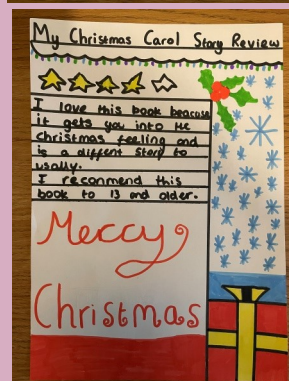 My Christmas Carol Story Review
I love this book beacuse
it gets you into the
Christmas feeling and
is a diffent story to
usally.
I reconmend this
book to 13 and older.
Merry
Christmas